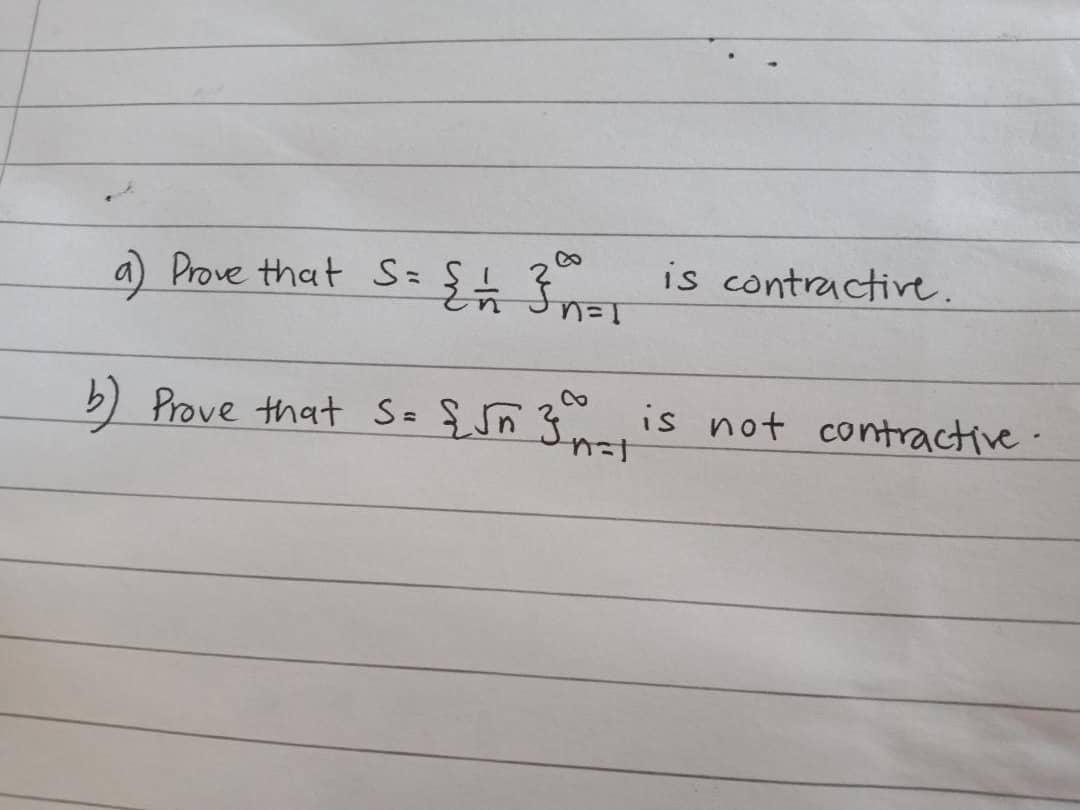 a) Prove that S = {1/n}^∞_{n=1} is contractive.
b) Prove that S = {√n}^∞_{n=1} is not contractive.